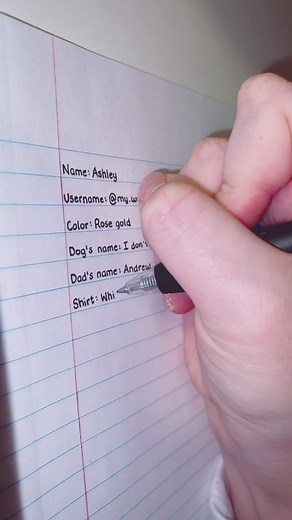 Name: Ashley
Username: @my.w
Color: Rose gold
Dog's name: I don't
Dad's name: Andrew
Shirt: Whi